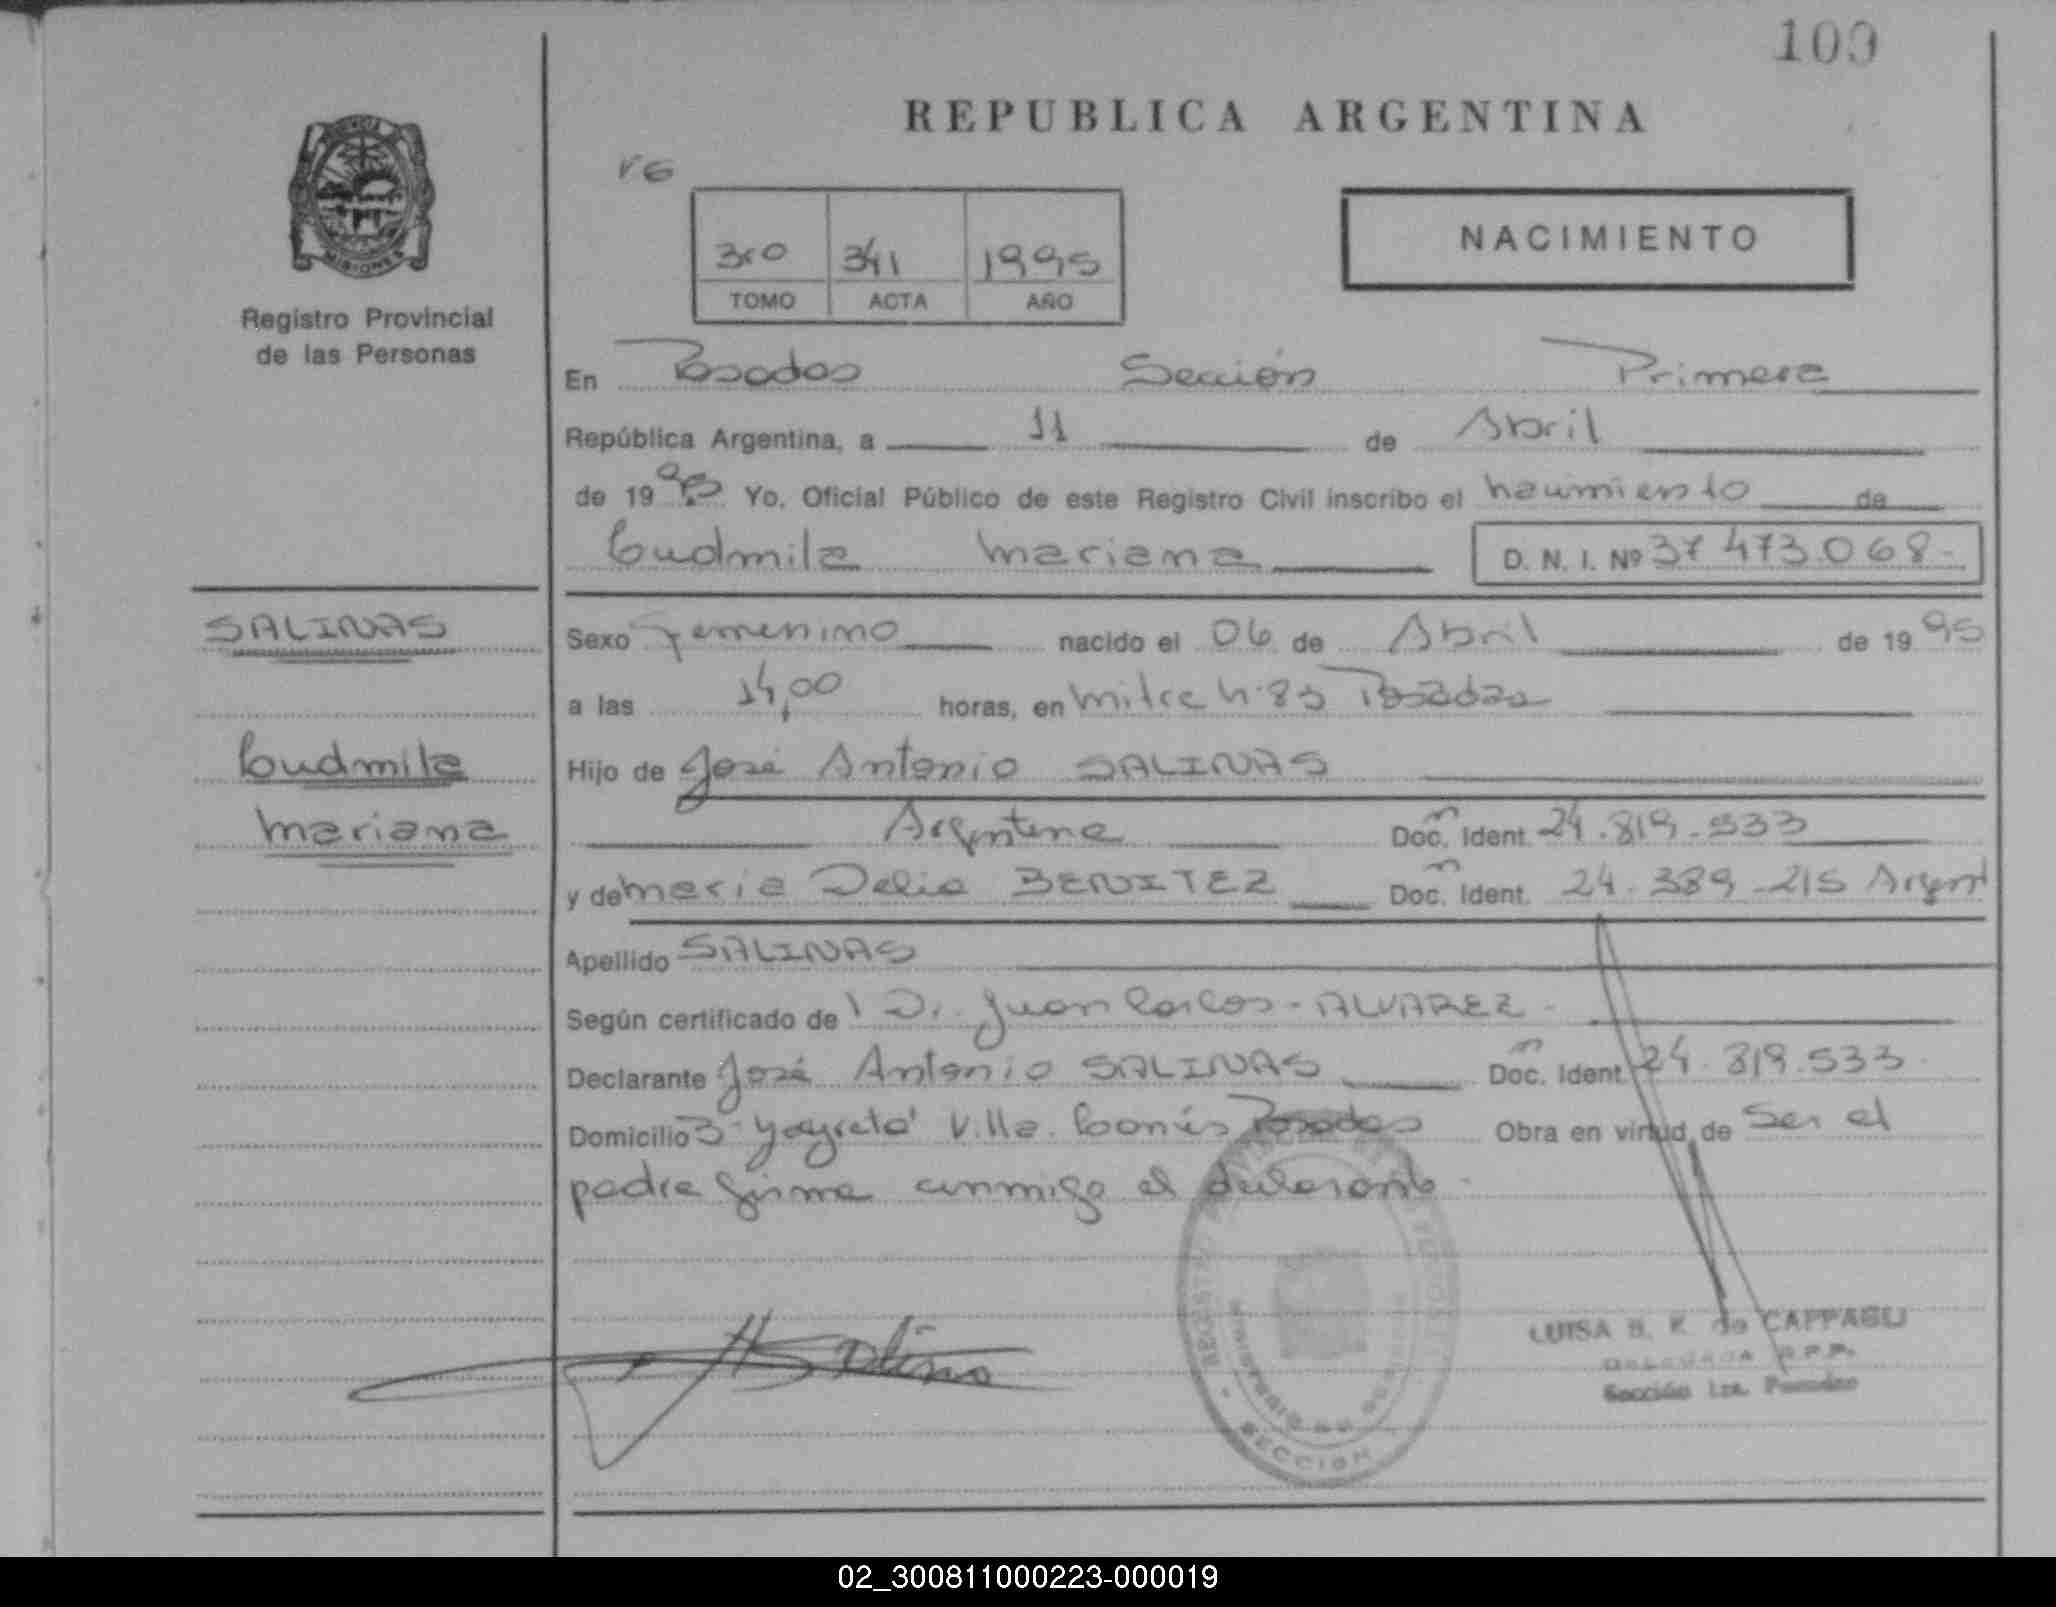 100
REPUBLICA ARGENTINA
MISIONES
Registro Provincial
de las Personas
3ro 341 1995
TOMO ACTA AÑO
NACIMIENTO
En Posadas Sección Primera
República Argentina, a 11 de Abril
de 1995 Yo, Oficial Público de este Registro Civil inscribo el nacimiento de
Ludmila Mariana D. N. I. Nº 37 473.068-
SALINAS
Ludmila
Mariana
Sexo Femenino nacido el 06 de Abril de 1995
a las 14,00 horas, en Mitre Nº 83 Posadas
Hijo de José Antonio SALINAS
Argentina Doc. Ident. 24.819.533
y de Maria Delia BENITEZ Doc. Ident. 24.389.215 Argent
Apellido SALINAS
Según certificado de Dr. Juan Carlos - ALVAREZ -
Declarante José Antonio SALINAS Doc. Ident. 24.819.533
Domicilio Yacyretá Villa Posadas Obra en virtud de Ser el
padre firma conmigo el declarante -
LUISA de CAPPAGLI
DELEGADA R.P.P.
Sección 1ra. Posadas
SECCION
02_300811000223-000019